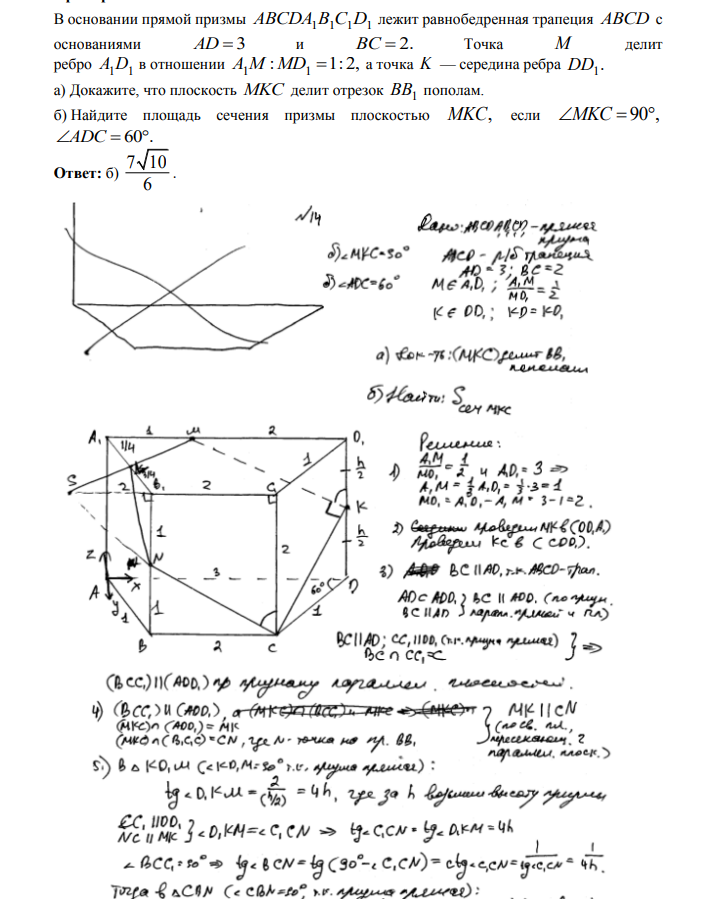 В основании прямой призмы ABCDA₁B₁C₁D₁ лежит равнобедренная трапеция ABCD с
основаниями AD = 3 и BC = 2. Точка M делит
ребро A₁D₁ в отношении A₁M : MD₁ = 1 : 2, а точка K — середина ребра DD₁.
а) Докажите, что плоскость MKC делит отрезок BB₁ пополам.
б) Найдите площадь сечения призмы плоскостью MKC, если ∠MKC = 90°,
∠ADC = 60°.
Ответ: б) 7√10/6.
N14
Дано: ABCDA₁B₁C₁D₁ - прямая
призма
б) ∠MKC = 90°
ABCD - р/б трапеция
AD = 3; BC = 2
∠ADC = 60°
M ∈ A₁D₁; A₁M/MD₁ = 1/2
K ∈ DD₁; KD = KD₁
а) Док-ть: (MKC) делит BB₁
пополам
б) Найти: S сеч MKC
A₁ 1 M 2 D₁
S 2 B₁ 2 C₁ 1 h/2
K
1 N 2 h/2
Z
A X 3 60° D
y 1 1 1
B 2 C
Решение:
1) A₁M/MD₁ = 1/2 и A₁D₁ = 3 ⇒
A₁M = 1/3 A₁D₁ = 1/3·3 = 1
MD₁ = A₁D₁ - A₁M = 3 - 1 = 2.
2) проведем MK в (DD₁A₁)
Проведем KC в (CDD₁).
3) BC || AD, т.к. ABCD - трап.
AD ⊂ ADD₁ } BC || ADD₁ (по призн.
BC || AD } парал. прямой и пл)
BC || AD; CC₁ || DD₁ (т.к. призма прямая) } ⇒
BC ∩ CC₁ = C
(BCC₁) || (ADD₁) по признаку параллел. плоскостей.
4) (BCC₁) || (ADD₁), } MK || CN
(MKC) ∩ (ADD₁) = MK (по св. пл.,
(MKC) ∩ (B₁C₁C) = CN, где N - точка на пр. BB₁ пересекающ. 2
параллел. плоск.)
5.) В △KD₁M (∠KD₁M = 90° т.к. призма прямая):
tg∠D₁KM = 2/(h/2) = 4h, где за h возьмем высоту призмы
CC₁ || DD₁ } ∠D₁KM = ∠C₁CN ⇒ tg∠C₁CN = tg∠D₁KM = 4h
NC || MK
∠BCC₁ = 90° ⇒ tg∠BCN = tg(90° - ∠C₁CN) = ctg∠C₁CN = 1/tg∠C₁CN = 1/4h.
Тогда в △CBN (∠CBN = 90°, т.к. призма прямая):